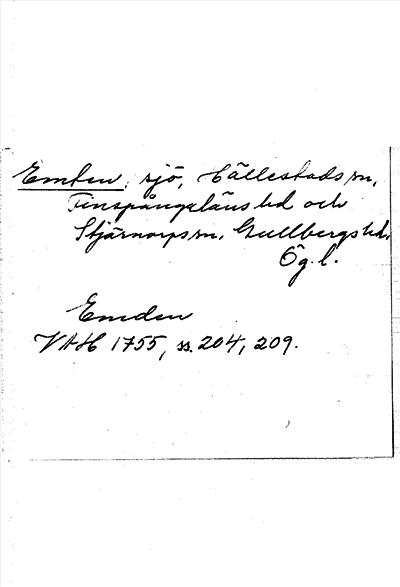 Emten, sjö, Hällestads sn,
Finspångaläns hd och
Stjärnorps sn, Gullbergs hd,
Ög. l.
Emden
VAH 1755, ss. 204, 209.